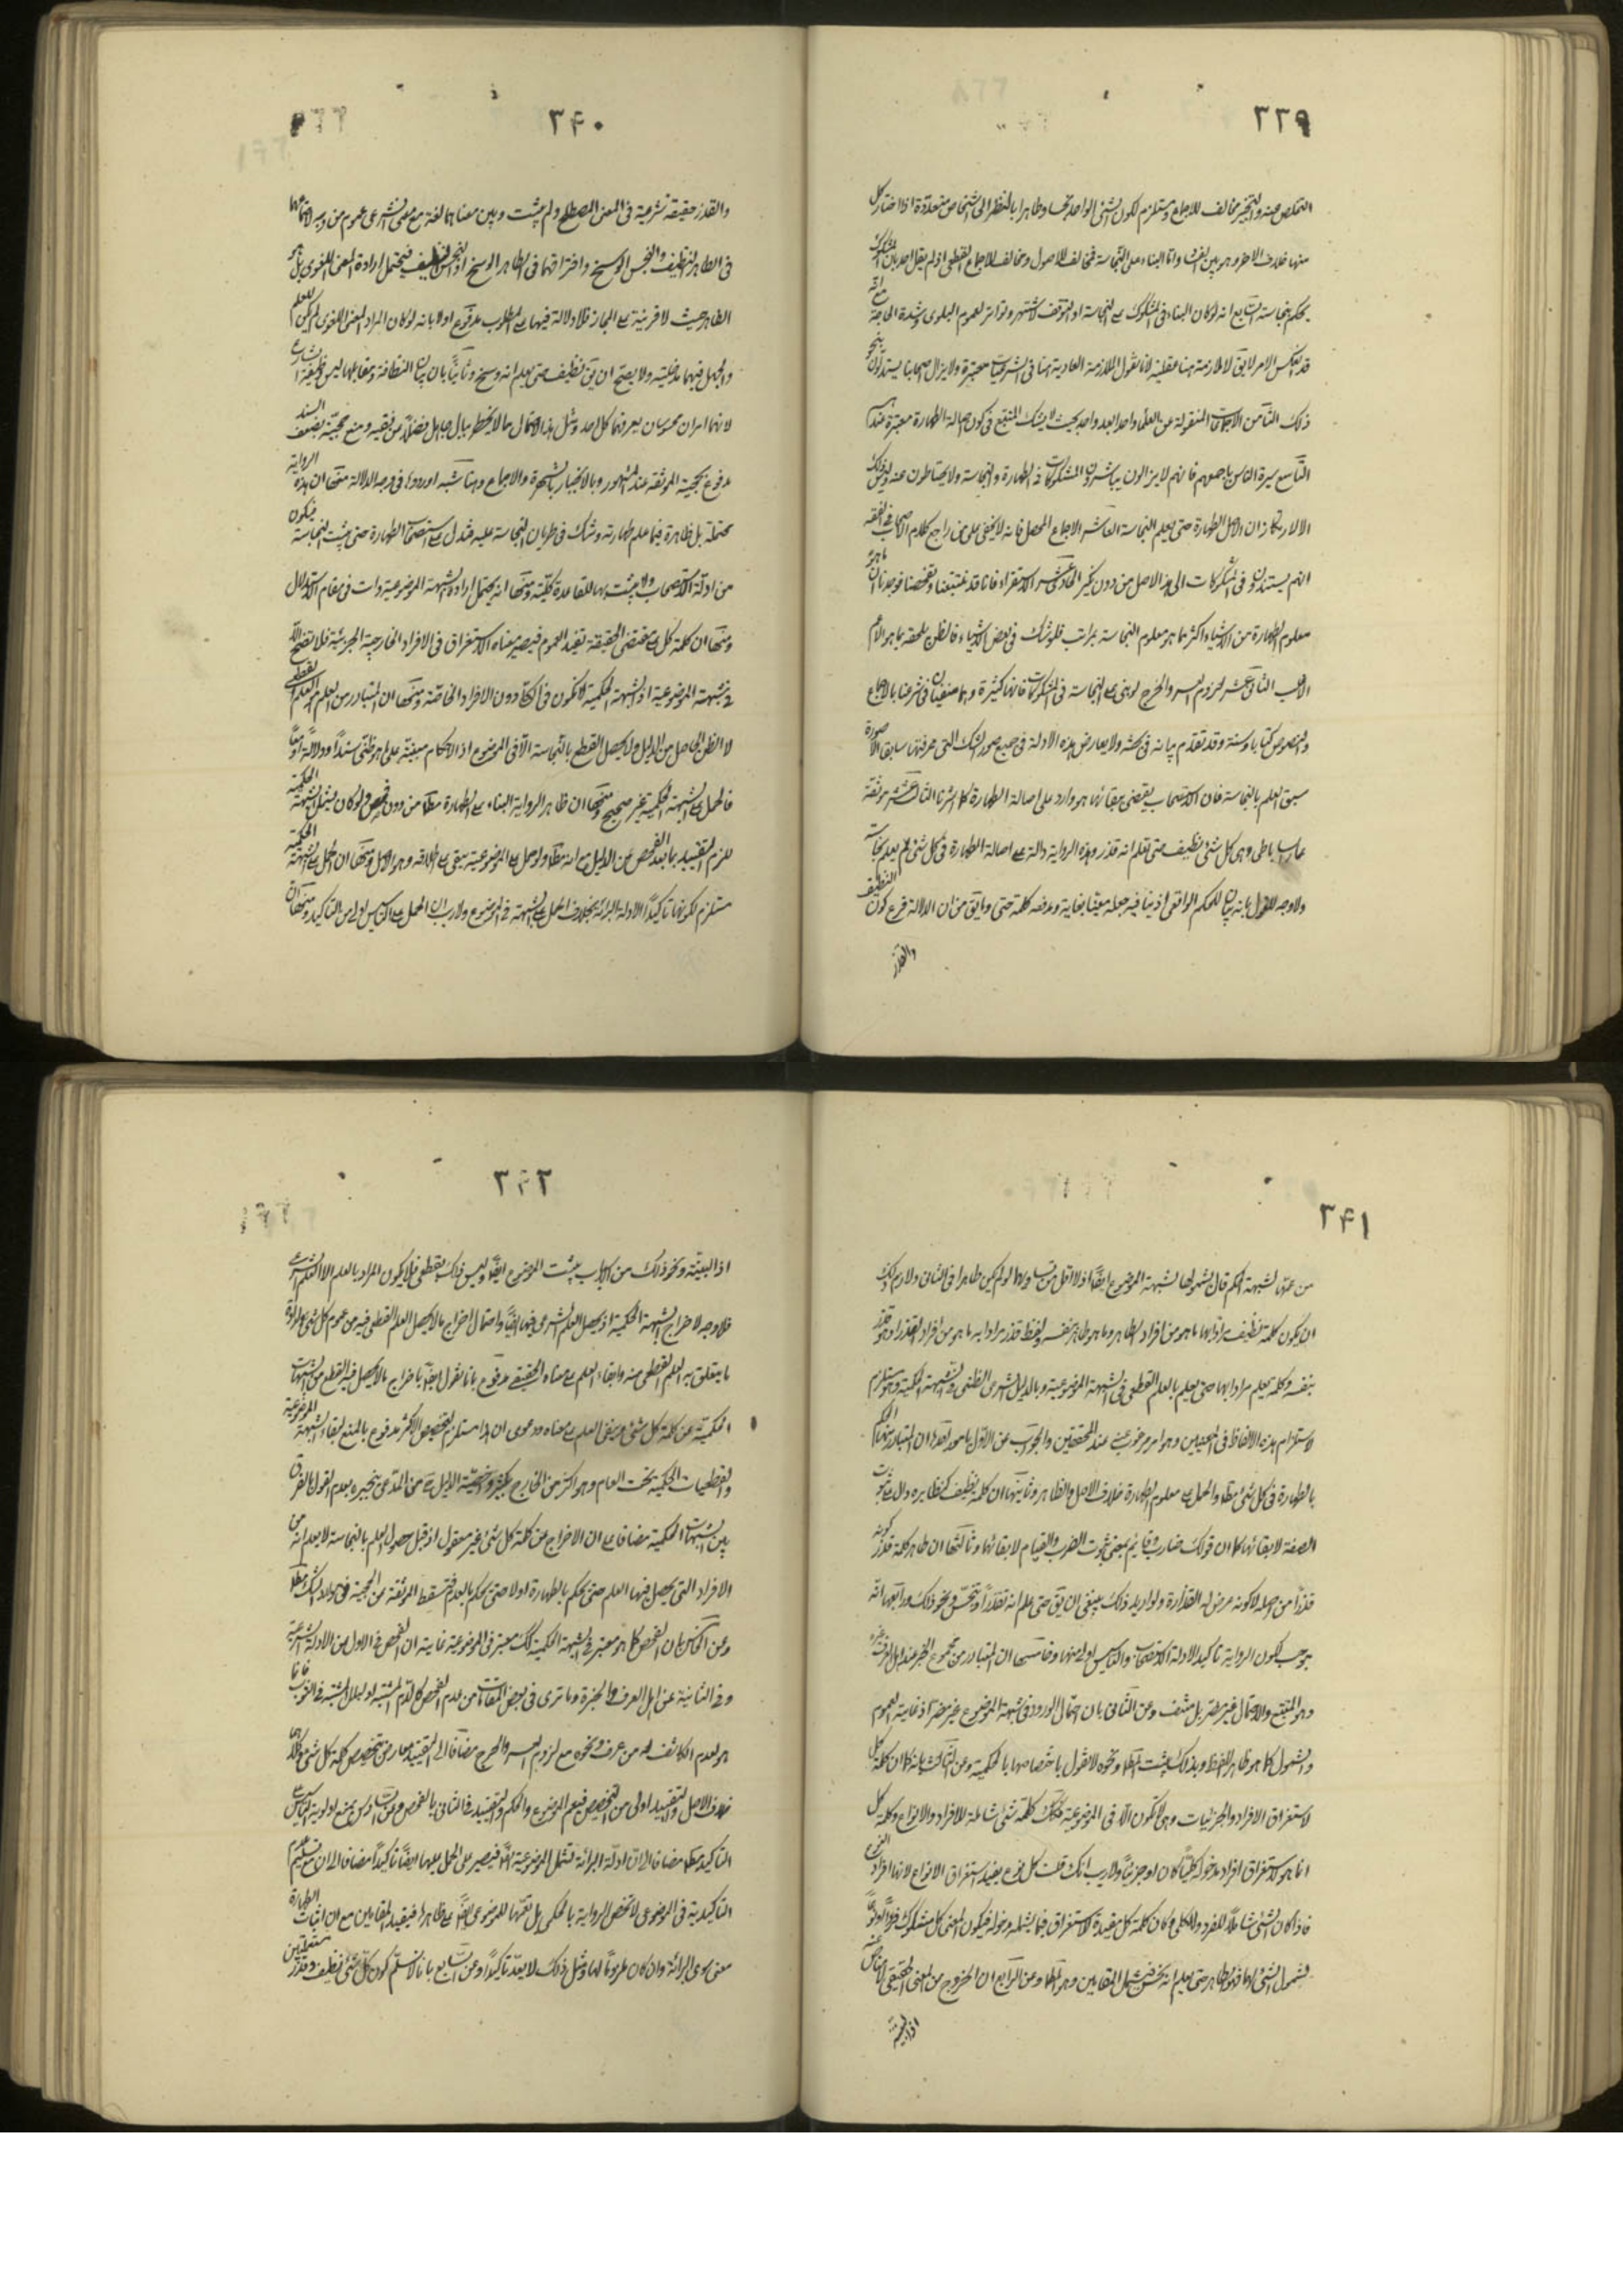 ٣٣٩
التخلص عنه والتخيير مخالف للاجماع ومستلزم لكون الشئ الواحد نجسا وطاهرا بالنظر الى اشخاص متعددة اذا اختار كل
منها خلاف الاخر وهو بين الفساد واما البناء على النجاسة فمخالف للاصول ومخالف للاجماع القطعى اذ لم يقل احد بان المشكوك
يحكم بنجاسته السابع انه لو كان البناء فى المشكوك على النجاسة او التوقف لاشتهر وتواتر لعموم البلوى وشدة الحاجة مع انه
قد انعكس الامر لا يق لا ملازمة هنا عقلية لانا نقول الملازمة العادية هنا فى الشرعيات معتبرة ولا يزال اصحابنا يستدلون بنحو
ذلك الثامن الاجماعات المنقولة عن العلماء واحدا بعد واحد بحيث لا يشك المتتبع فى كون اصالة الطهارة معتبرة عندهم
التاسع سيرة الناس باجمعهم فانهم لا يزالون يباشرون المشكوكات فى الطهارة والنجاسة ولا يحتاطون عنه وليس ذلك
الا لارتكاز ان الاصل الطهارة حتى يعلم النجاسة العاشر الاجماع المحصل فانه لا يخفى على من راجع كلام الاصحاب فى الفقه
انهم يستندون فى المشكوكات الى هذا الاصل من دون نكير الحادى عشر الاستقراء فانا قد تتبعنا وتفحصنا فوجدنا ان ما هو
معلوم الطهارة من الاشياء اكثر مما هو معلوم النجاسة بمراتب فلو شك فى بعض الاشياء فالظن يلحقه بما هو الاعم
الاغلب الثانى عشر لزوم العسر والحرج لو بنى على النجاسة فى المشكوكات فانها كثيرة وهما منفيتان فى شرعنا بالاجماع
والنصوص كتابا وسنة وقد تقدم بيانه فى محله ولا يعارض هذه الادلة فى جميع صور الشك التى عرفتها سابقا الا صورة
سبق العلم بالنجاسة فان الاستصحاب يقتضى بقائها وهو وارد على اصالة الطهارة كما اشرنا الثالث عشر موثقة
عمار الساباطى وهى كل شئ نظيف حتى تعلم انه قذر وهذه الرواية دالة على اصالة الطهارة فى كل شئ لم يعلم نجاسته
ولا وجه للقول بانه بيان للحكم الواقعى اذ ينافيه جعله مغيا بغاية وعرضه كلمة حتى وما يق من ان الدلالة فرع كون النظيف
والقذر
٣٤٠
والقذر حقيقة شرعية فى المعنى المصطلح ولم يثبت وبين معناهما لغة مع معنى الشرعى عموم من وجه لاجتماعهما
فى الطاهر النظيف والنجس الوسخ وافتراقهما فى الطاهر الوسخ او النجس النظيف فيحتمل ارادة المعنى اللغوى بل هو
الظاهر حيث لا قرينة على المجاز فلا دلالة فيها على المطلوب مدفوع اولا بانه لو كان المراد المعنى اللغوى لم يكن للعلم
والجهل فيهما مدخلية ولا يصح ان يق نظيف حتى يعلم انه وسخ وثانيا بان بيان النظافة ومقابلها ليس وظيفة الشارع
لانهما امران محسوسان يعرفهما كل احد ومثل هذا الاحتمال مما لا يخطر ببال جاهل فضلا عن فقيه ومنع حجية بضعف السند
مدفوع بحجية الموثقة عند المشهور وبالانجبار بالشهرة والاجماع وهنا شبه اوردوا فى وجه الدلالة منها ان هذه الرواية
محتملة بل ظاهرة فيما علم طهارته وشك فى طريان النجاسة عليه فتدل على استصحاب الطهارة حتى يثبت النجاسة فيكون
من ادلة الاستصحاب ولا يثبت بها القاعدة كلية ومنها انه يحتمل ارادة الشبهة الموضوعية وانت فى مقام الاستدلال
ومنها ان كلمة كل على مقتضى الحقيقة تفيد العموم فيصير معناه الاستغراق فى الافراد الخارجية الجزئية فلا يتضح الا
فى شبهة الموضوعية اذ الشبهة الحكمية لا تكون فى دون الافراد الخاصة ومنها ان المتبادر من العلم هو العلم القطعى
لا الظن الحاصل من الدليل ولا يحصل القطع بالنجاسة الا فى الموضوع اذ الاحكام مبنية على ما هو ظنى سندا ودلالة او
فالحمل على الشبهة الحكمية غير صحيح ومنها ان ظاهر الرواية البناء على الطهارة مطلقا من دون فحص ولو كان يشمل الشبهة الحكمية
للزم التقييد بما بعد الفحص عن الدليل مع انه مطلق ولو حمل على الموضوعية يبقى على اطلاقه وهو الاصل ومنها ان الحمل على الشبهة الحكمية
مستلزم لكونها تاكيدا لادلة البرائة بخلاف الحمل على الشبهة فى الموضوع ولا ريب ان الحمل على التاسيس اولى من التاكيد ومنها ان
٣٤١
من عمم الشبهة الحكم قال بشمولها لشبهة الموضوع ايضا اذ لا اقل من تساويهما لو لم يكن ظاهرا فى الثانى ولازم ذلك
ان يكون كلمة نظيف مرادا بها ما هو من افراد الطاهر وما هو طاهر بنفسه ولفظ قذر مرادا به ما هو من افراد القذر او هو قذر
بنفسه وكلمة يعلم مرادا بها حتى يعلم بالعلم القطعى فى الشبهة الموضوعية وبالدليل الشرعى الظنى فى الشبهة الحكمية وهو مستلزم
لاستلزام هذه الالفاظ فى المعنيين وهو امر مرغوب عنه عند المحققين والجواب عن الاول بامور احدها ان المتبادر منها الحكم
بالطهارة فى كل شئ مطلقا والحمل على معلوم الطهارة خلاف الاصل والظاهر وثانيتها ان كلمة نظيف كنظائره دال على ثبوت
الصفة لابقائها كما ان قولك ضارب وقايم بمعنى ثبوت الضرب والقيام لا بقائها وثالثها ان ظاهر كلمة قذر كونه
قذرا من اصله لا كونه عرض له القذارة ولو اريد ذلك ينبغى ان يق حتى علم انه تقذر او تنجس ونحو ذلك ورابعها انه
يوجب كون الرواية تاكيدا لادلة الاستصحاب والتاسيس اولى منها وخامسها ان المتبادر من مجموع الخبر عند اهل العرف غيره
وهو المتبع والاحتمال غير مضر بل منتف وعن الثانى بان احتمال الورود فى شبهة الموضوع غير مضر اذ غايته العموم
والشمول كما هو ظاهر اللفظ وبذلك يثبت المط ونحوه لا نقول باختصاصها بالحكمية وعن الثالث بانه كما ان كلمة كل
لاستغراق الافراد والجزئيات وهى لا تكون الا فى الموضوعية فكذلك كلمة شئ شاملة للافراد والانواع وكلمة كل
انما هو لاستغراق افراد مدخوله كليا كان او جزئيا ولا ريب انك قلت كل نوع يفيد استغراق الانواع لانها افراد النوع
فاذا كان الشئ شاملا للفرد والكلى وكان كلمة كل مفيدة لاستغراق فيما يشمله مدخوله فيكون المعنى كل مشكوك فردا او نوعا
لشمول الشئ لهما فهو طاهر حتى يعلم انه نجس فيشمل المقامين وهو المط وعن الرابع ان الخروج عن المعنى الحقيقى لا مناص عنه
اذ البينة
٣٤٢
اذ البينة ونحو ذلك من الاسباب يثبت الموضوع ايضا وليس ذلك بقطعى فلا يكون المراد بالعلم الا العلم الشرعى
فلا وجه لاخراج الشبهة الحكمية اذ يحصل العلم الشرعى فيها ايضا واحتمال اخراج ما لا يحصل العلم القطعى فيه من عموم كل شئ وارادة
ما يتعلق به العلم القطعى منه وابقاء العلم على معناه الحقيقى مدفوع بانا نقول ايضا باخراج ما لا يحصل فيه القطع من الشبهات
الحكمية عن كلمة كل شئ ويبقى العلم على معناه ودعوى ان هذا مستلزم لتخصيص الاكثر مدفوع بالمنع لبقاء الشبهة الموضوعية
والقطعيات الحكمية تحت العام وهو اكثر من الخارج بكثير واخصية الدليل عن المدعى ينجبر بعدم القول بالفرق
بين الشبهات الحكمية مضافا على ان الاخراج عن كلمة كل شئ غير معقول اذ قبل حصول العلم بالنجاسة لا يعلم انه من
الافراد التى يحصل فيها العلم حتى يحكم بالطهارة اولا حتى يحكم بالعدم فتسقط الموثقة عن الحجية فى موارد الشك مطلقا
وعن الخامس بان الفحص كما هو معتبر فى الشبهة الحكمية كذلك معتبر فى الموضوعية غايته ان الفحص فى الاول من الادلة الشرعية
وفى الثانية عن اهل العرف والخبرة وما ترى فى بعض المقامات من عدم الفحص كالدم المشتبه او البلل المشتبه فى الثوب فانما
هو لعدم الكاشف له من عرف ونحوه مع لزوم العسر والحرج مضافا الى ان التقييد معارض بتخصيص كلمة كل شئ وكلاهما
خلاف الاصل والتقييد اولى من التخصيص فيعم الموضوع والحكم والتقييد فى الثانى بالفحص وعن السادس بمنع اولوية التاسيس على
التاكيد مطلقا مضافا الى ان ادلة البرائة تشمل الموضوعية ايضا فيصير على الحمل عليها ايضا تاكيدا مضافا الى ان مع تسليم
التاكيدية فى الموضوعى لا تخص الرواية بالحكمى بل تعمها للموضوعى ايضا على ظاهرها فيفيد المقامين مع ان اثبات الطهارة
معنى سوى البرائة وان كان ملزوما لها ومثل ذلك لا يعد تاكيدا وعن السابع بانا لا نسلم كون كل شئ نظيف وقذر مستعملين